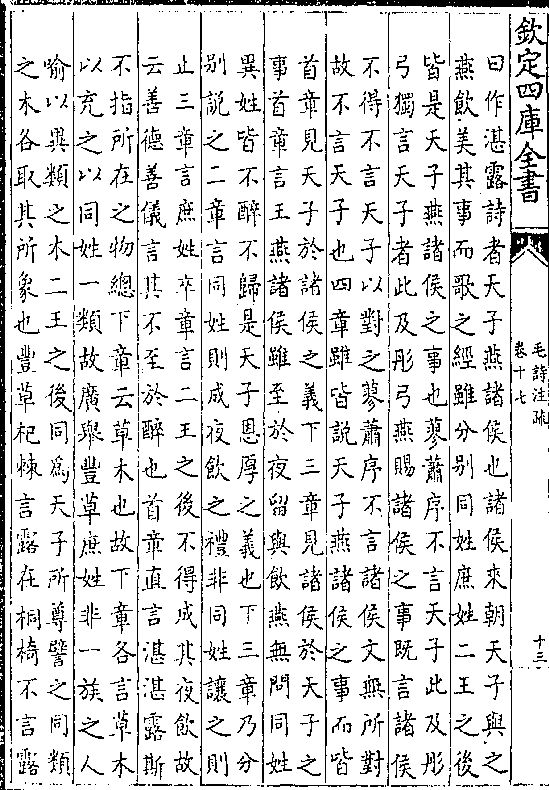 欽定四庫全書
毛詩注疏
卷十七
十三
曰作湛露詩者天子燕諸侯也諸侯來朝天子與之
燕飲美其事而歌之經雖分别同姓庶姓二王之後
皆是天子燕諸侯之事也蓼蕭序不言天子此及彤
弓獨言天子者此及彤弓燕賜諸侯之事既言諸侯
不得不言天子以對之蓼蕭序不言諸侯文無所對
故不言天子也四章雖皆說天子燕諸侯之事而皆
首章見天子於諸侯之義下三章見諸侯於天子之
事首章言王燕諸侯雖至於夜留與飲燕無問同姓
異姓皆不醉不歸是天子恩厚之義也下三章乃分
别説之二章言同姓則成夜飲之禮非同姓讓之則
止三章言庶姓卒章言二王之後不得成其夜飲故
云善德善儀言其不至於醉也首章直言湛湛露斯
不指所在之物總下章云草木也故下章各言草木
以充之以同姓一類故廣舉豐草庶姓非一族之人
喻以異類之木二王之後同為天子所尊譬之同類
之木各取其所象也豐草杞棘言露在桐椅不言露